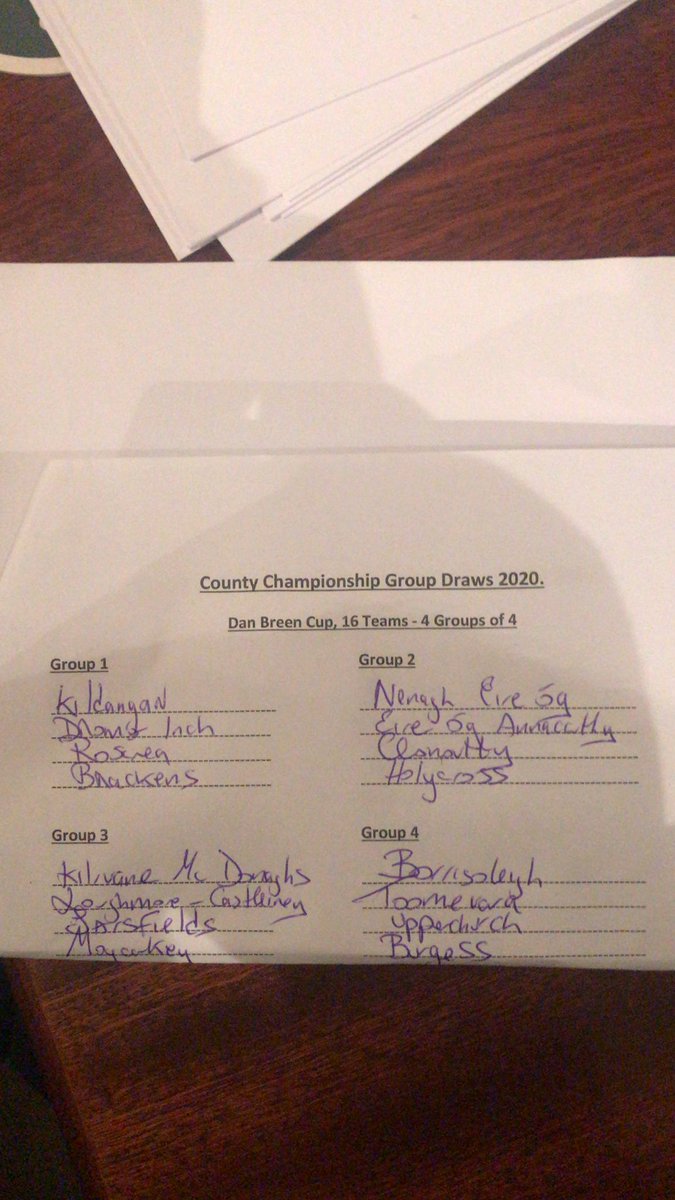 County Championship Group Draws 2020.
Dan Breen Cup, 16 Teams - 4 Groups of 4
Group 1
Kildangan
Drom & Inch
Roscrea
Brackens
Group 2
Nenagh Eire Óg
Eire Óg Annacatty
Clonoulty
Holycross
Group 3
Kilruane Mc Donaghs
Loughmore - Castleiney
Sarsfields
Moycarkey
Group 4
Borrisoleigh
Toomevara
Upperchurch
Burgess